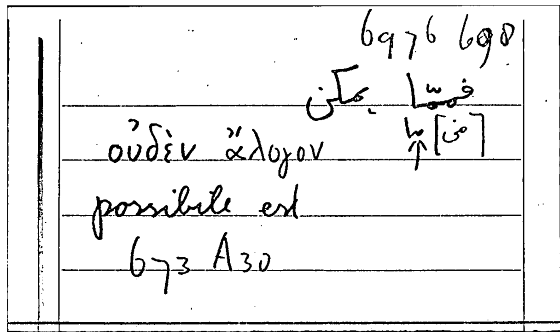 697b 698
فمما يمكن
[من] ما
οὐδὲν ἄλογον
possibile est
673 A30